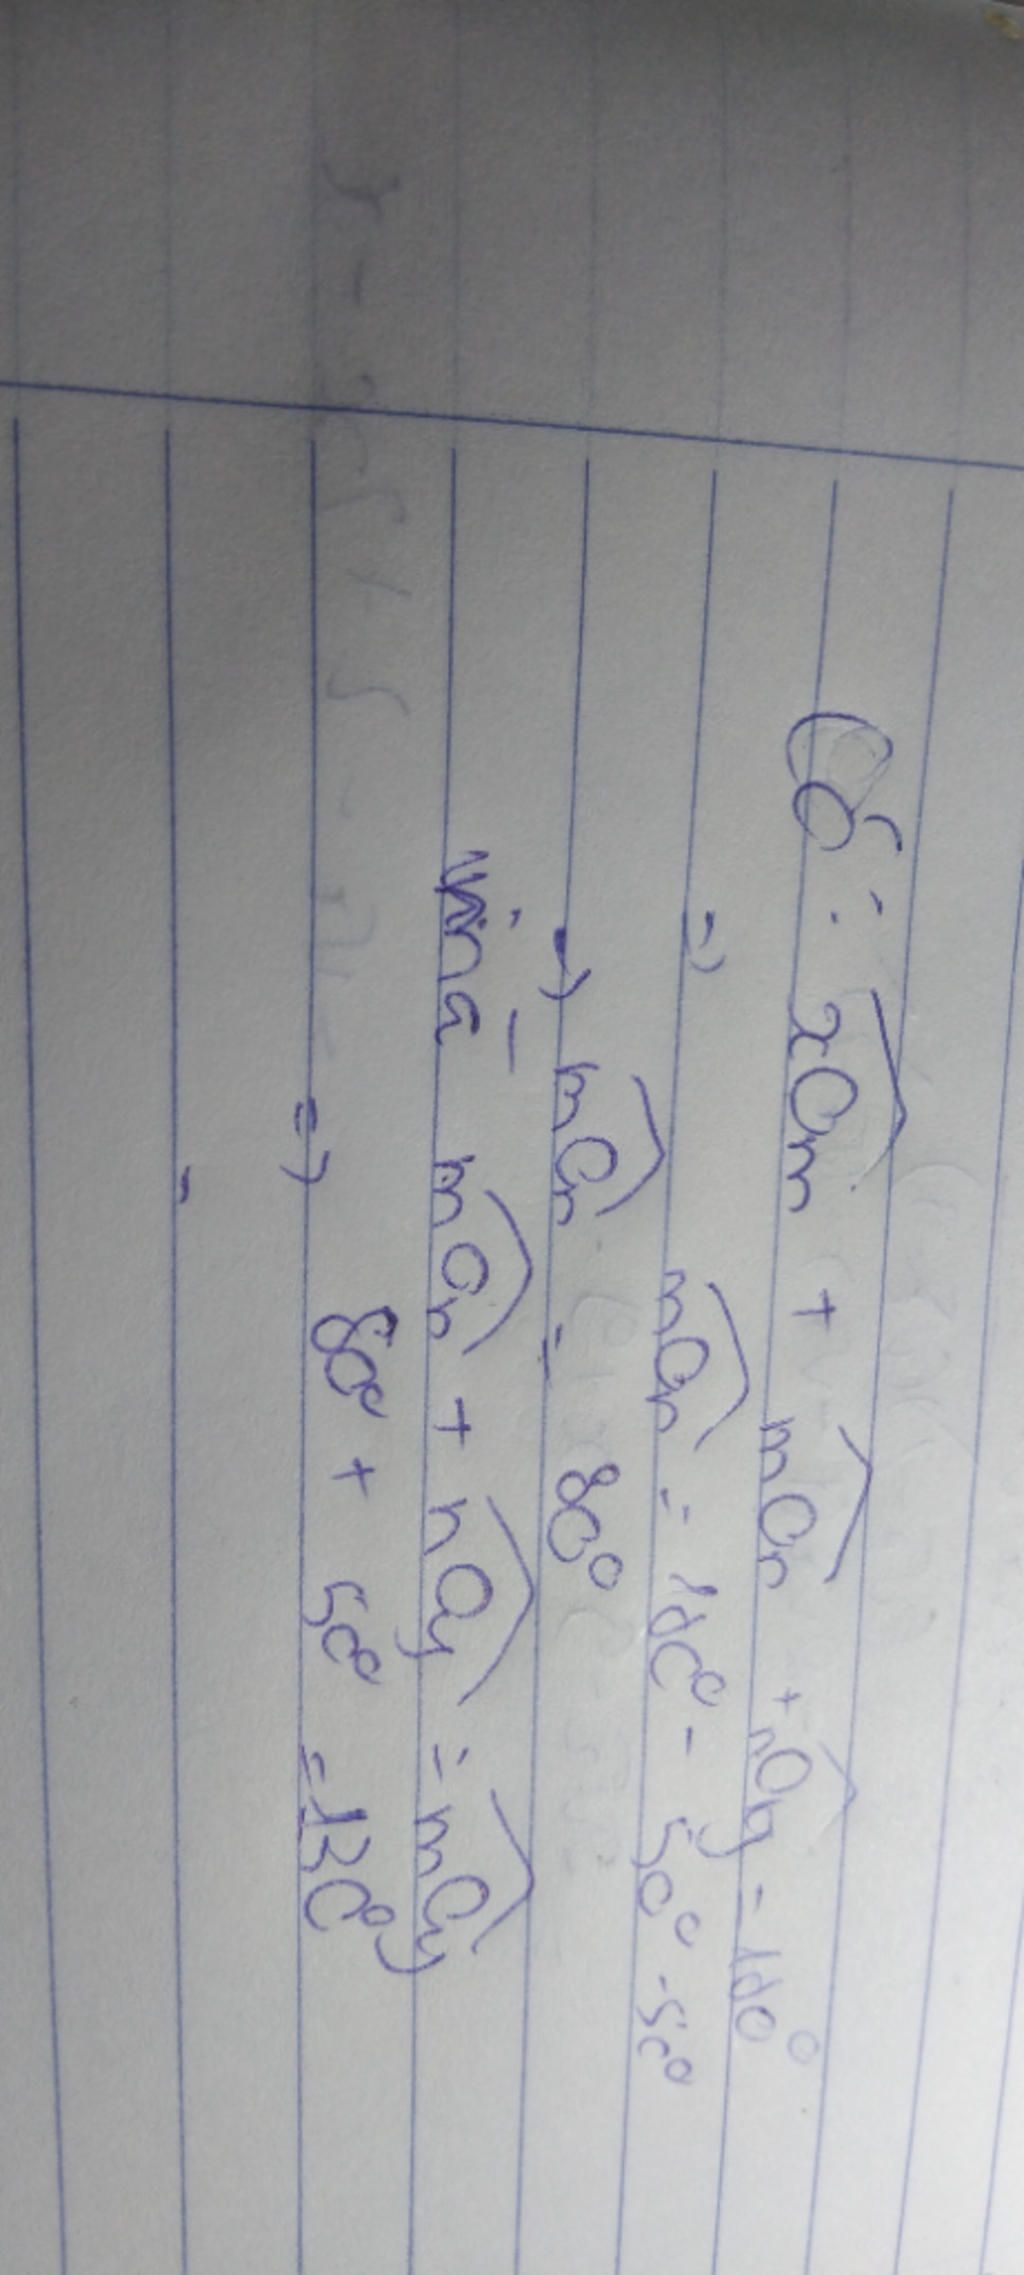 Có: xOm + mOn + nOy = 180°
=> mOn = 180° - 50° - 50°
=> mOn = 80°
mà mOn + nOy = mOy
=> 80° + 50° = 130°